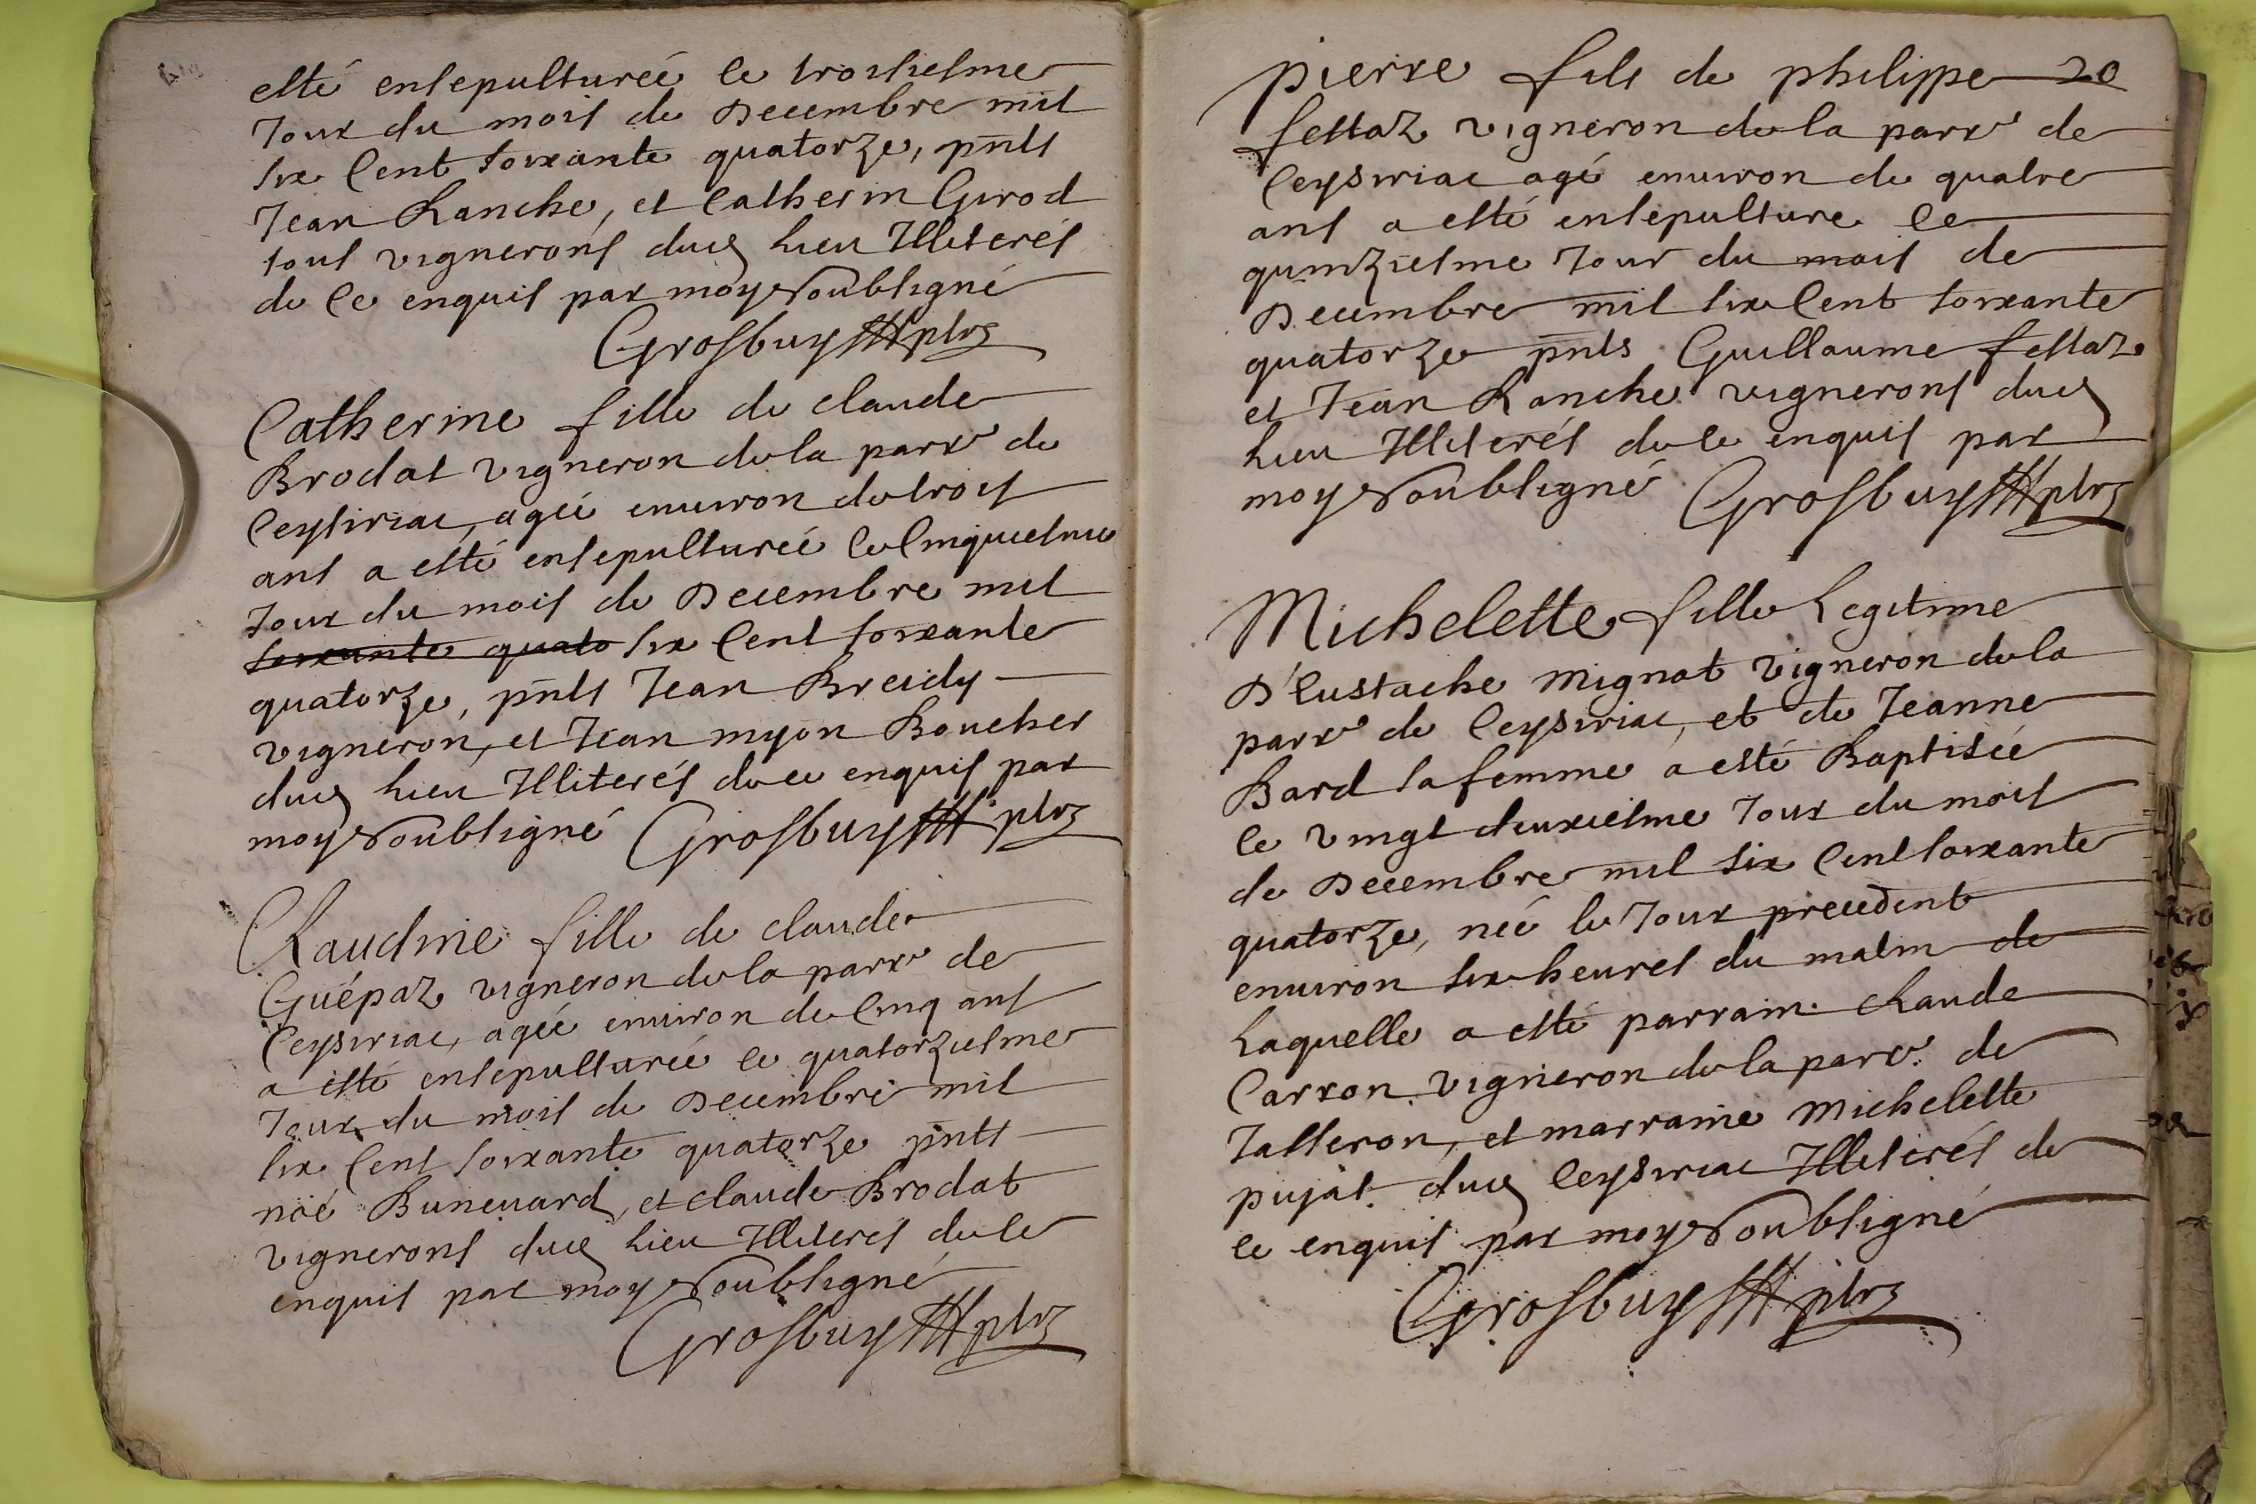 esté ensepulturéé le troisiesme
Jour du mois de Decembre mil
six Cent soixante quatorze, pnts
Jean Ranche, et Catherin Girod
tous vignerons dud lieu Illiterés
de Ce enquis par moy Soubsigné
Grosbuy ptre
Catherine fille de claude
Brodat vigneron de la parr^e de
Ceysiriac, agéé enuiron de trois
ans a esté ensepulturéé le Cinquiesme
Jour du mois de Decembre mil
soixante quato six Cent soixante
quatorze, pnts Jean Breidy
vigneron, et Jean myon Boucher
dud lieu Illiterés de ce enquis par
moy Soubsigné Grosbuy ptre
Claudine fille de claude
Guépaz vigneron de la parr^e de
Ceysiriac, agéé enuiron de Cinq ans
a esté ensepulturéé le quatorziesme
Jour du mois de Decembre mil
six Cent soixante quatorze pnts
noé Buneuard, et claude Brodat
vignerons dud lieu Illiterés de Ce
enquis par moy Soubsigné
Grosbuy ptre
pierre fils de philippe 20
festaz vigneron de la parr^e de
Ceysiriac agé enuiron de quatre
ans a esté ensepulture le
quinziesme Jour du mois de
Decembre mil six Cent soixante
quatorze pnts Guillaume festaz
et Jean Ranche vignerons dud
lieu Illiterés de Ce enquis par
moy Soubsigné Grosbuy ptre
Michelette fille Legitime
D'Eustache Mignot Vigneron de la
parr^e de Ceysiriac, et de Jeanne
Bard sa femme a esté Baptiséé
le vingt deuxiesme Jour du mois
de Decembre mil six Cent soixante
quatorze, néé le Jour precedent
enuiron six heures du matin de
Laquelle a esté parrain Claude
Carron vigneron de la parr^e de
Jasseron, et marraine Michelette
pujat dud Ceysiriac Illiterés de
ce enquis par moy Soubsigné
Grosbuy ptre